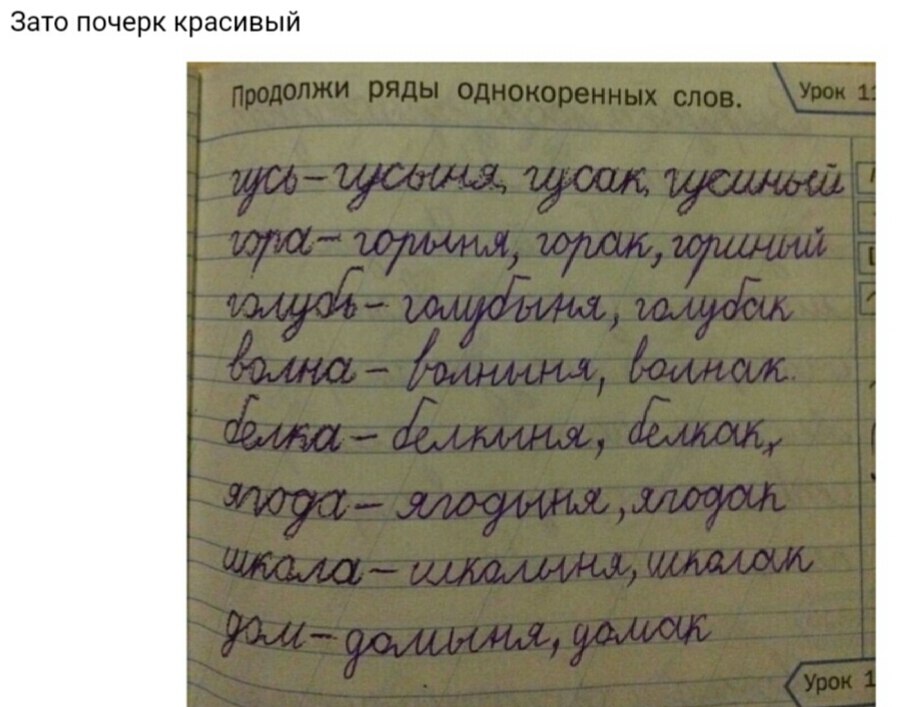 Зато почерк красивый
Продолжи ряды однокоренных слов.
Урок 11
гусь – гусыня, гусак, гусиный
гора – горыня, горак, гориный
голубь – голубыня, голубак
волна – волныня, волнак.
белка – белкыня, белкак,
ягода – ягодыня, ягодак
школа – школыня, школак
дом – домыня, домак
Урок 1